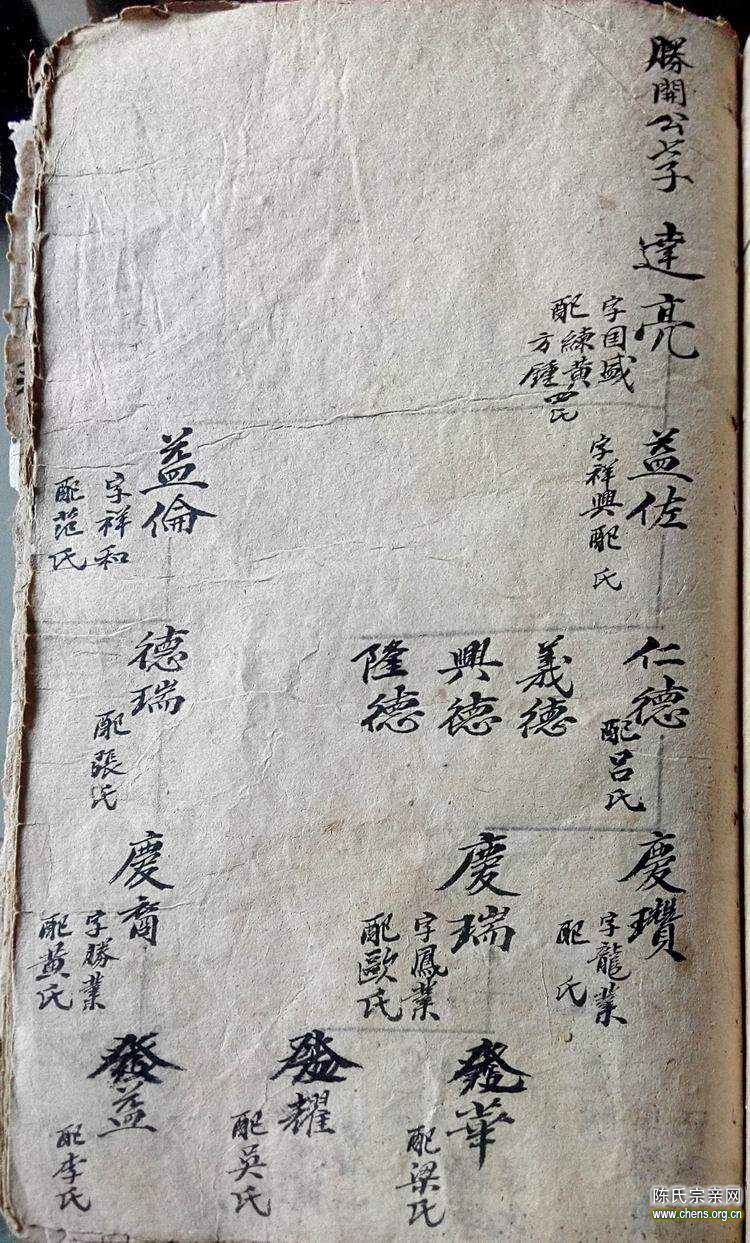 勝開公七子
達亮
字国盛
配練黄
方鍾四氏
益佐
字祥興配 氏
益倫
字祥和
配范氏
仁德
配呂氏
義德
興德
隆德
德瑞
配張氏
慶瓚
字龍業
配 氏
慶瑞
字鳳業
配歐氏
慶裔
字勝業
配黄氏
發華
配梁氏
發耀
配吳氏
發益
配李氏
陈氏宗亲网
www.chens.org.cn